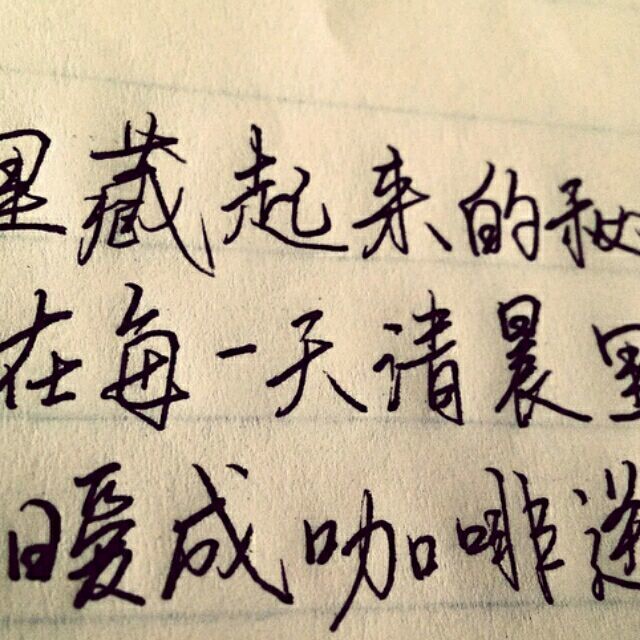 里藏起来的秘
在每一天清晨里
暖成咖啡递